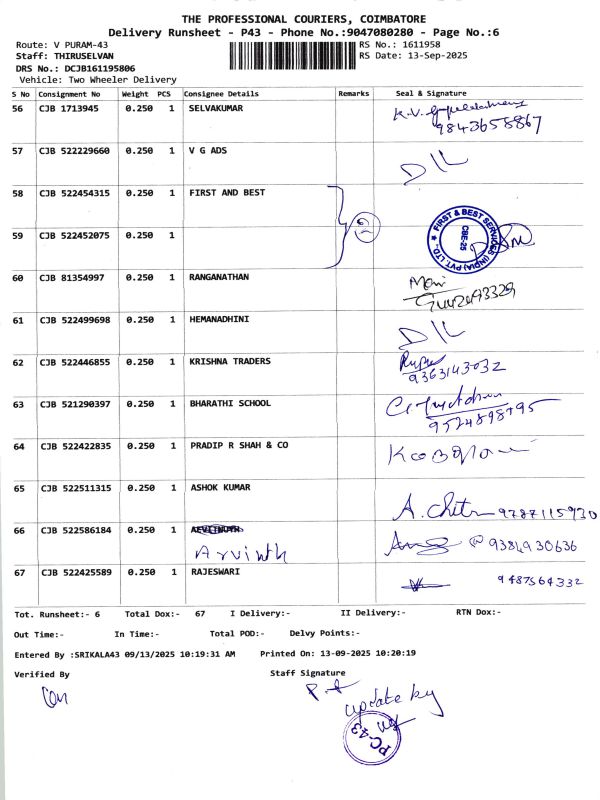 THE PROFESSIONAL COURIERS, COIMBATORE
Delivery Runsheet - P43 - Phone No.:9047080280 - Page No.:6
Route: V PURAM-43 RS No.: 1611958
Staff: THIRUSELVAN RS Date: 13-Sep-2025
DRS No.: DCJB161195806
Vehicle: Two Wheeler Delivery
S No Consignment No Weight PCS Consignee Details Remarks Seal & Signature
56 CJB 1713945 0.250 1 SELVAKUMAR
9843658867
57 CJB 522229660 0.250 1 V G ADS D/L
58 CJB 522454315 0.250 1 FIRST AND BEST
2
FIRST & BEST SERVICES (INDIA) PVT. LTD. CBE-25
59 CJB 522452075 0.250 1
60 CJB 81354997 0.250 1 RANGANATHAN
61 CJB 522499698 0.250 1 HEMANADHINI D/L
62 CJB 522446855 0.250 1 KRISHNA TRADERS
9363143032
63 CJB 521290397 0.250 1 BHARATHI SCHOOL
9524898795
64 CJB 522422835 0.250 1 PRADIP R SHAH & CO
65 CJB 522511315 0.250 1 ASHOK KUMAR
A. Chitra 9787115930
66 CJB 522586184 0.250 1
Arvinth 9384930636
67 CJB 522425589 0.250 1 RAJESWARI 9487564332
Tot. Runsheet:- 6 Total Dox:- 67 I Delivery:- II Delivery:- RTN Dox:-
Out Time:- In Time:- Total POD:- Delvy Points:-
Entered By :SRIKALA43 09/13/2025 10:19:31 AM Printed On: 13-09-2025 10:20:19
Verified By Staff Signature
update by
PC-43